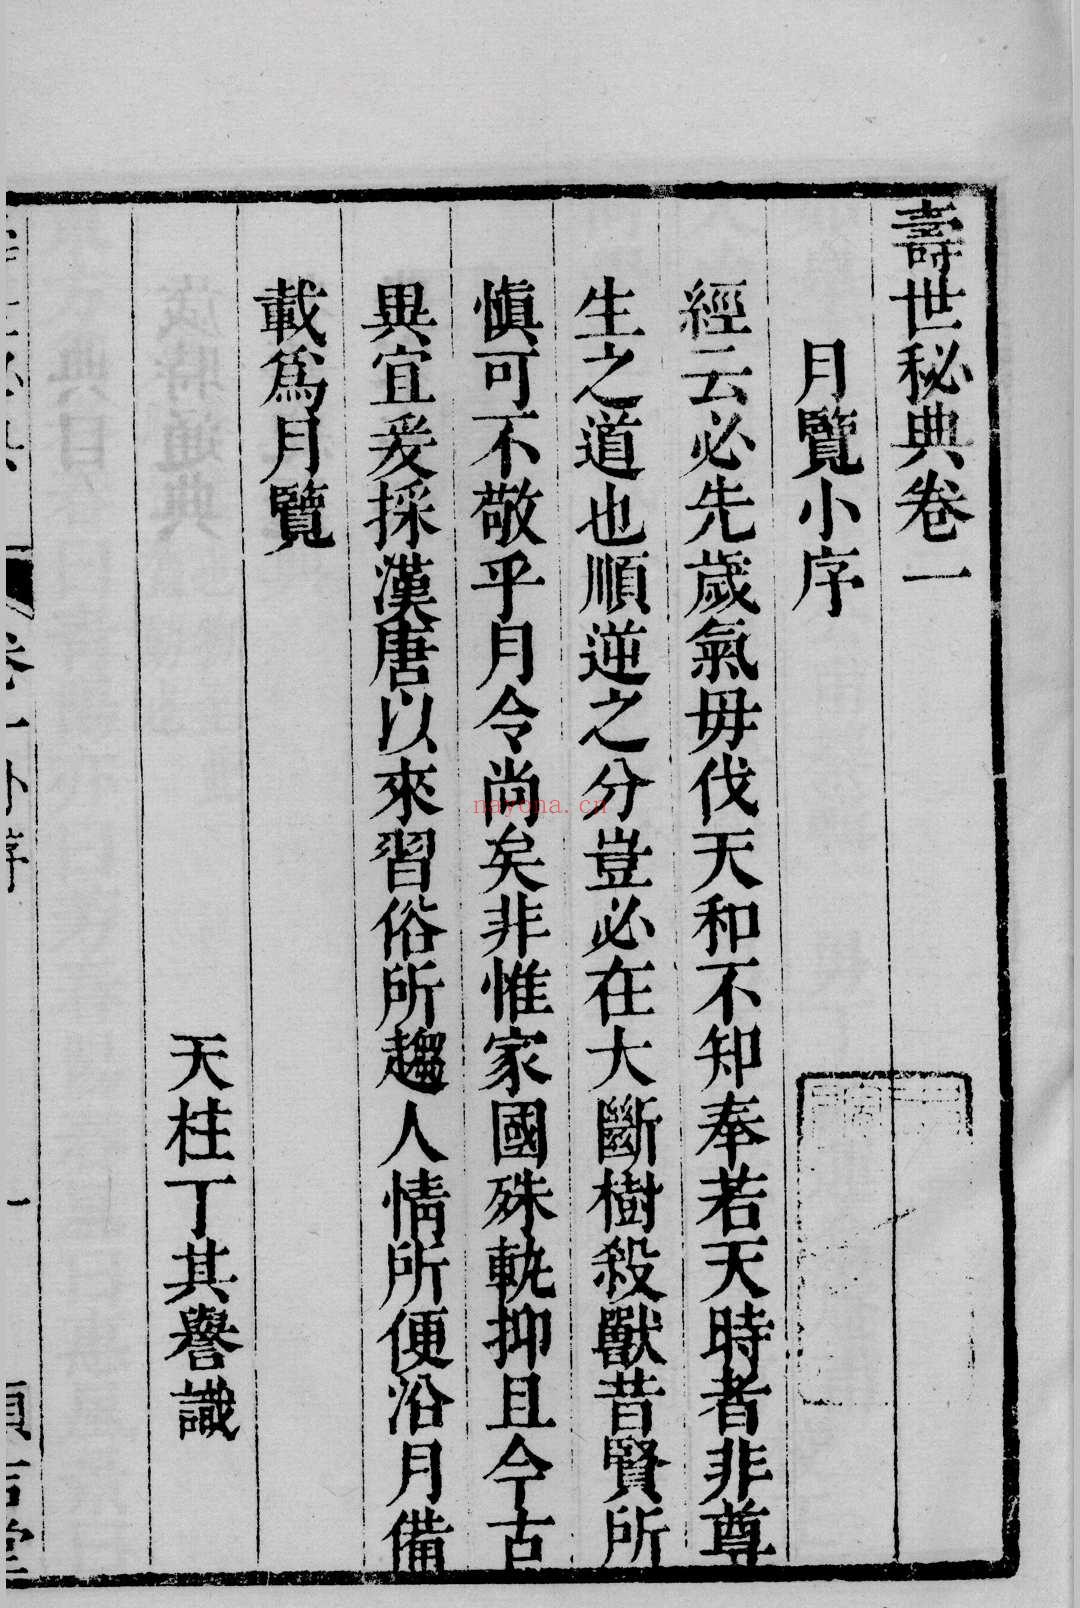 壽世秘典卷一
月覽小序
經云必先歲氣毋伐天和不知奉若天時者非尊
生之道也順逆之分豈必在大斷樹殺獸昔賢所
慎可不敬乎月令尚矣非惟家國殊軌抑且今古
異宜爰採漢唐以來習俗所趨人情所便沿月備
載爲月覽
天柱丁其譽識
nayona.cn